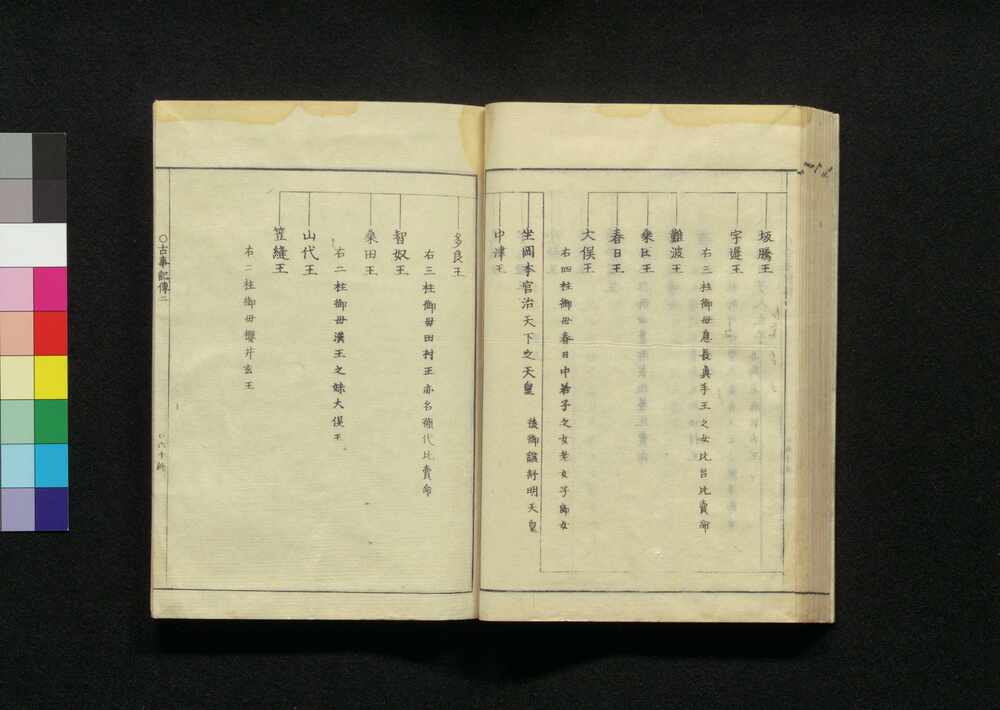 坂騰王
宇遲王
右三柱御母息長真手王之女比呂比賣命
難波王
桑田王
春日王
大俣王
右四柱御母春日中若子之女老女子郎女
坐岡本宮治天下之天皇 後御諡舒明天皇
中津王
多良王
右三柱御母田村王亦名糠代比賣命
智奴王
桑田王
右二柱御母漢王之妹大俣王
山代王
笠縫王
右二柱御母櫻井玄王
○古事記傳二
○六十終